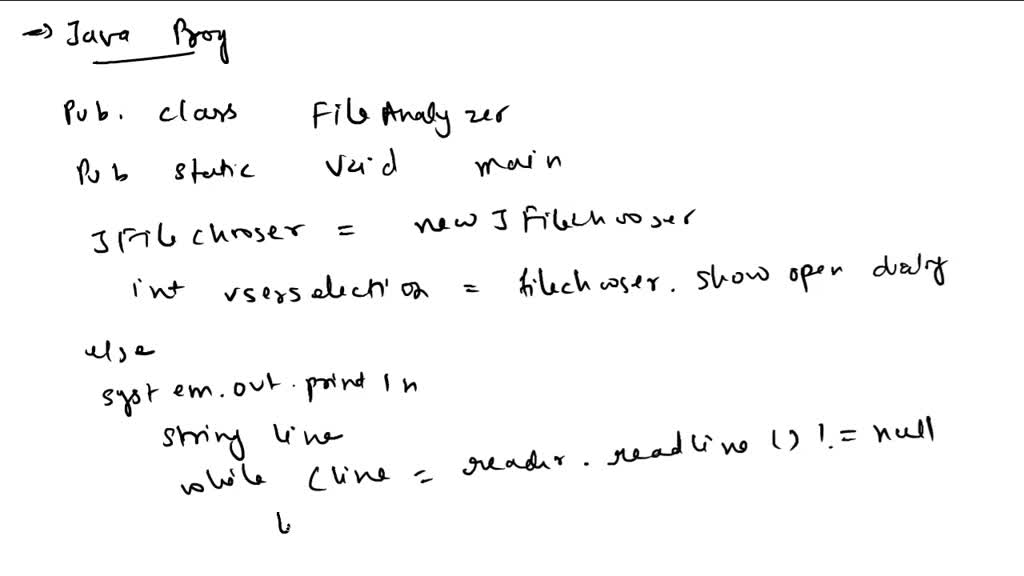 → Java Proy
Pub. class File Analyzer
Pub static void main
JFile chooser = new J Filechooser
int userselection = filechooser. show open dialy
else
syst em. out. print ln
string line
while (line = reader. readline () != null